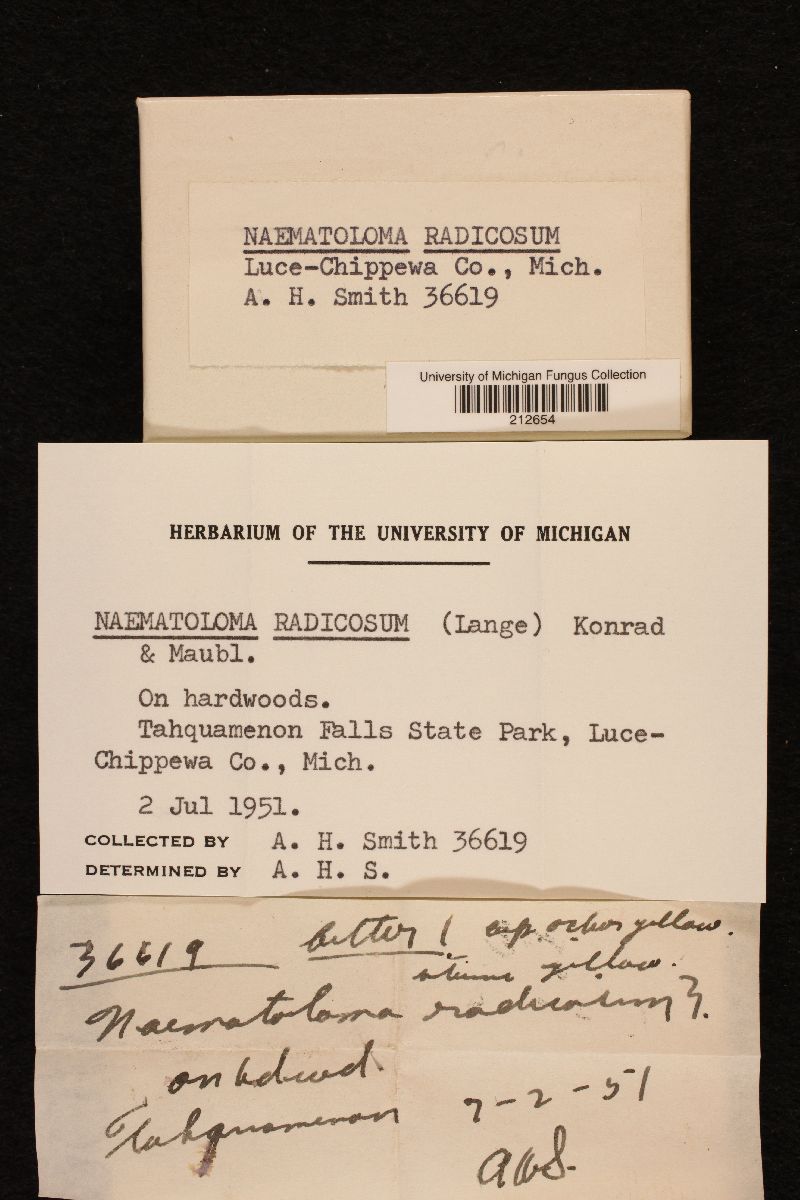 NAEMATOLOMA RADICOSUM
Luce-Chippewa Co., Mich.
A. H. Smith 36619
University of Michigan Fungus Collection
212654
HERBARIUM OF THE UNIVERSITY OF MICHIGAN
NAEMATOLOMA RADICOSUM (Lange) Konrad
& Maubl.
On hardwoods.
Tahquamenon Falls State Park, Luce-
Chippewa Co., Mich.
2 Jul 1951.
COLLECTED BY A. H. Smith 36619
DETERMINED BY A. H. S.
36619 bitter! cap ochre yellow.
yellow.
Naematoloma radicosum?
on hdwd
Tahquamenon 7-2-51
AHS.